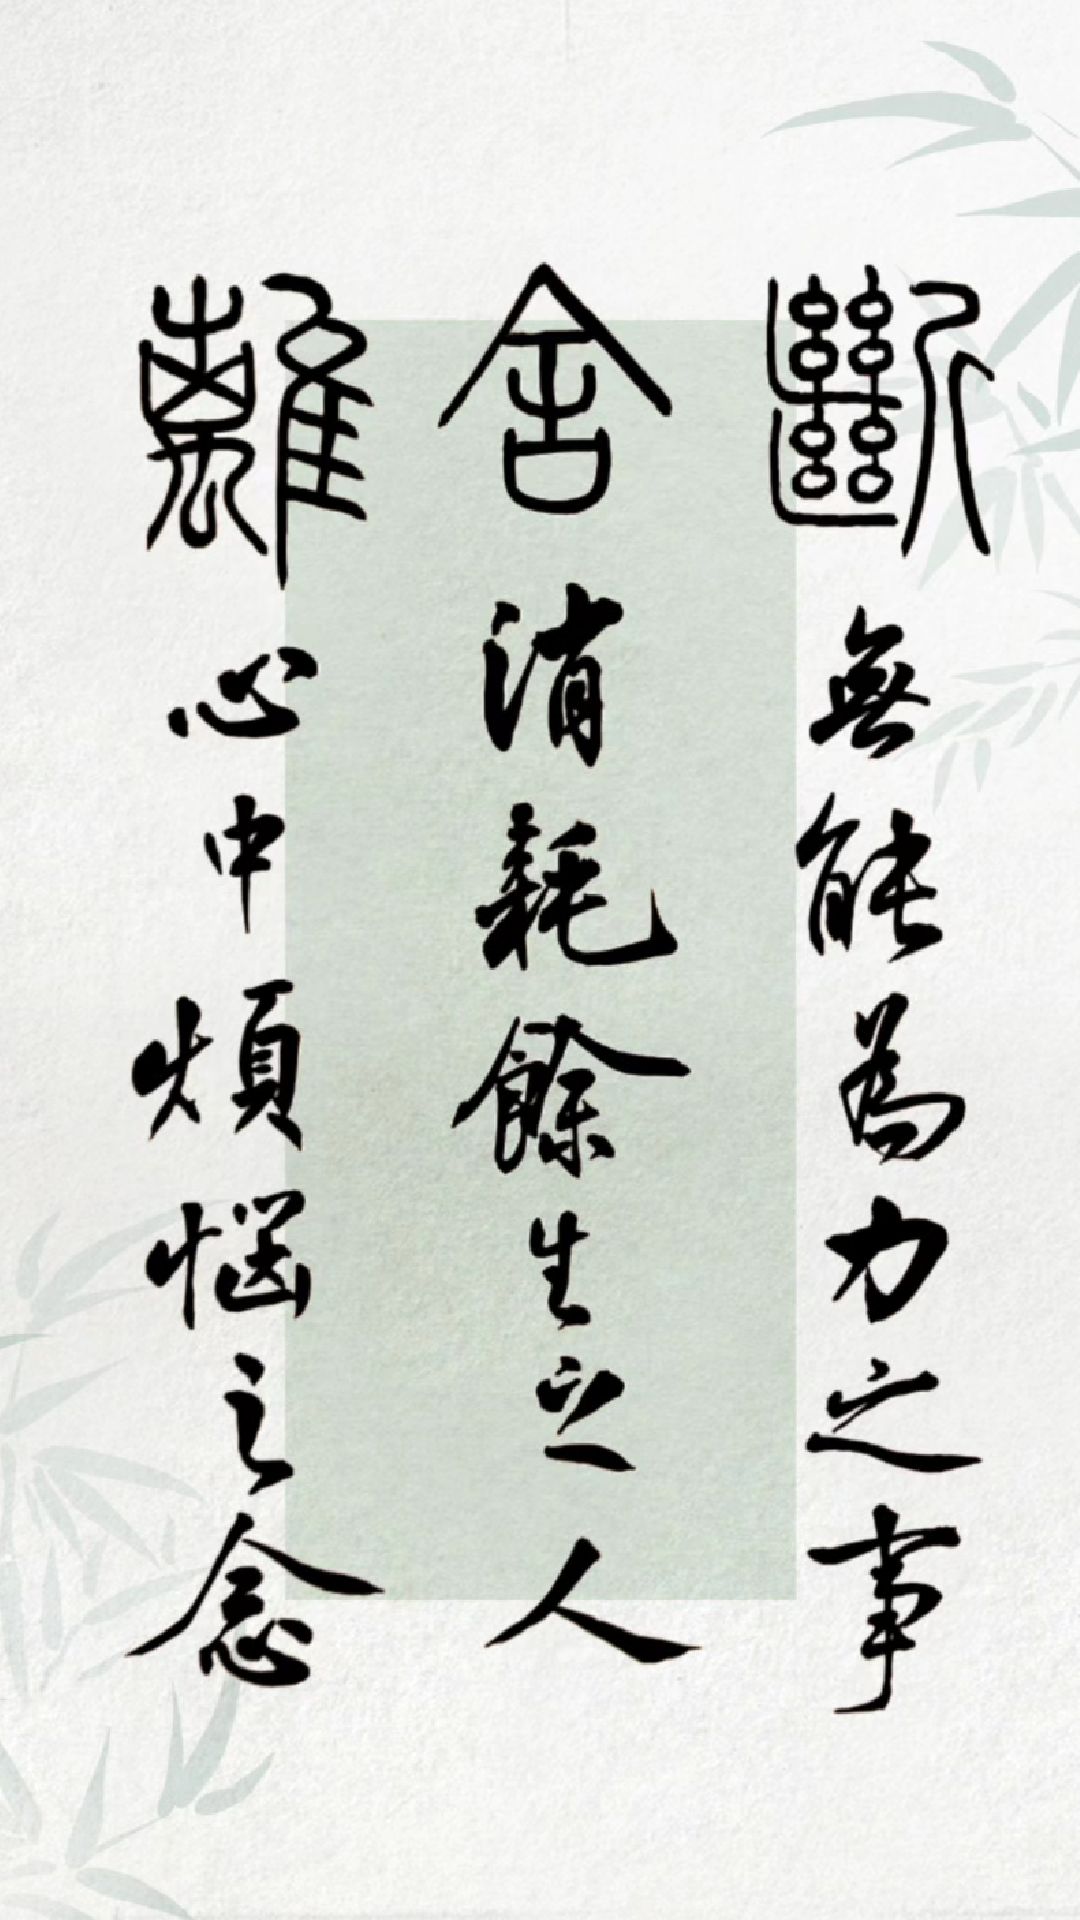 斷無能為力之事
舍消耗餘生之人
離心中煩惱之念